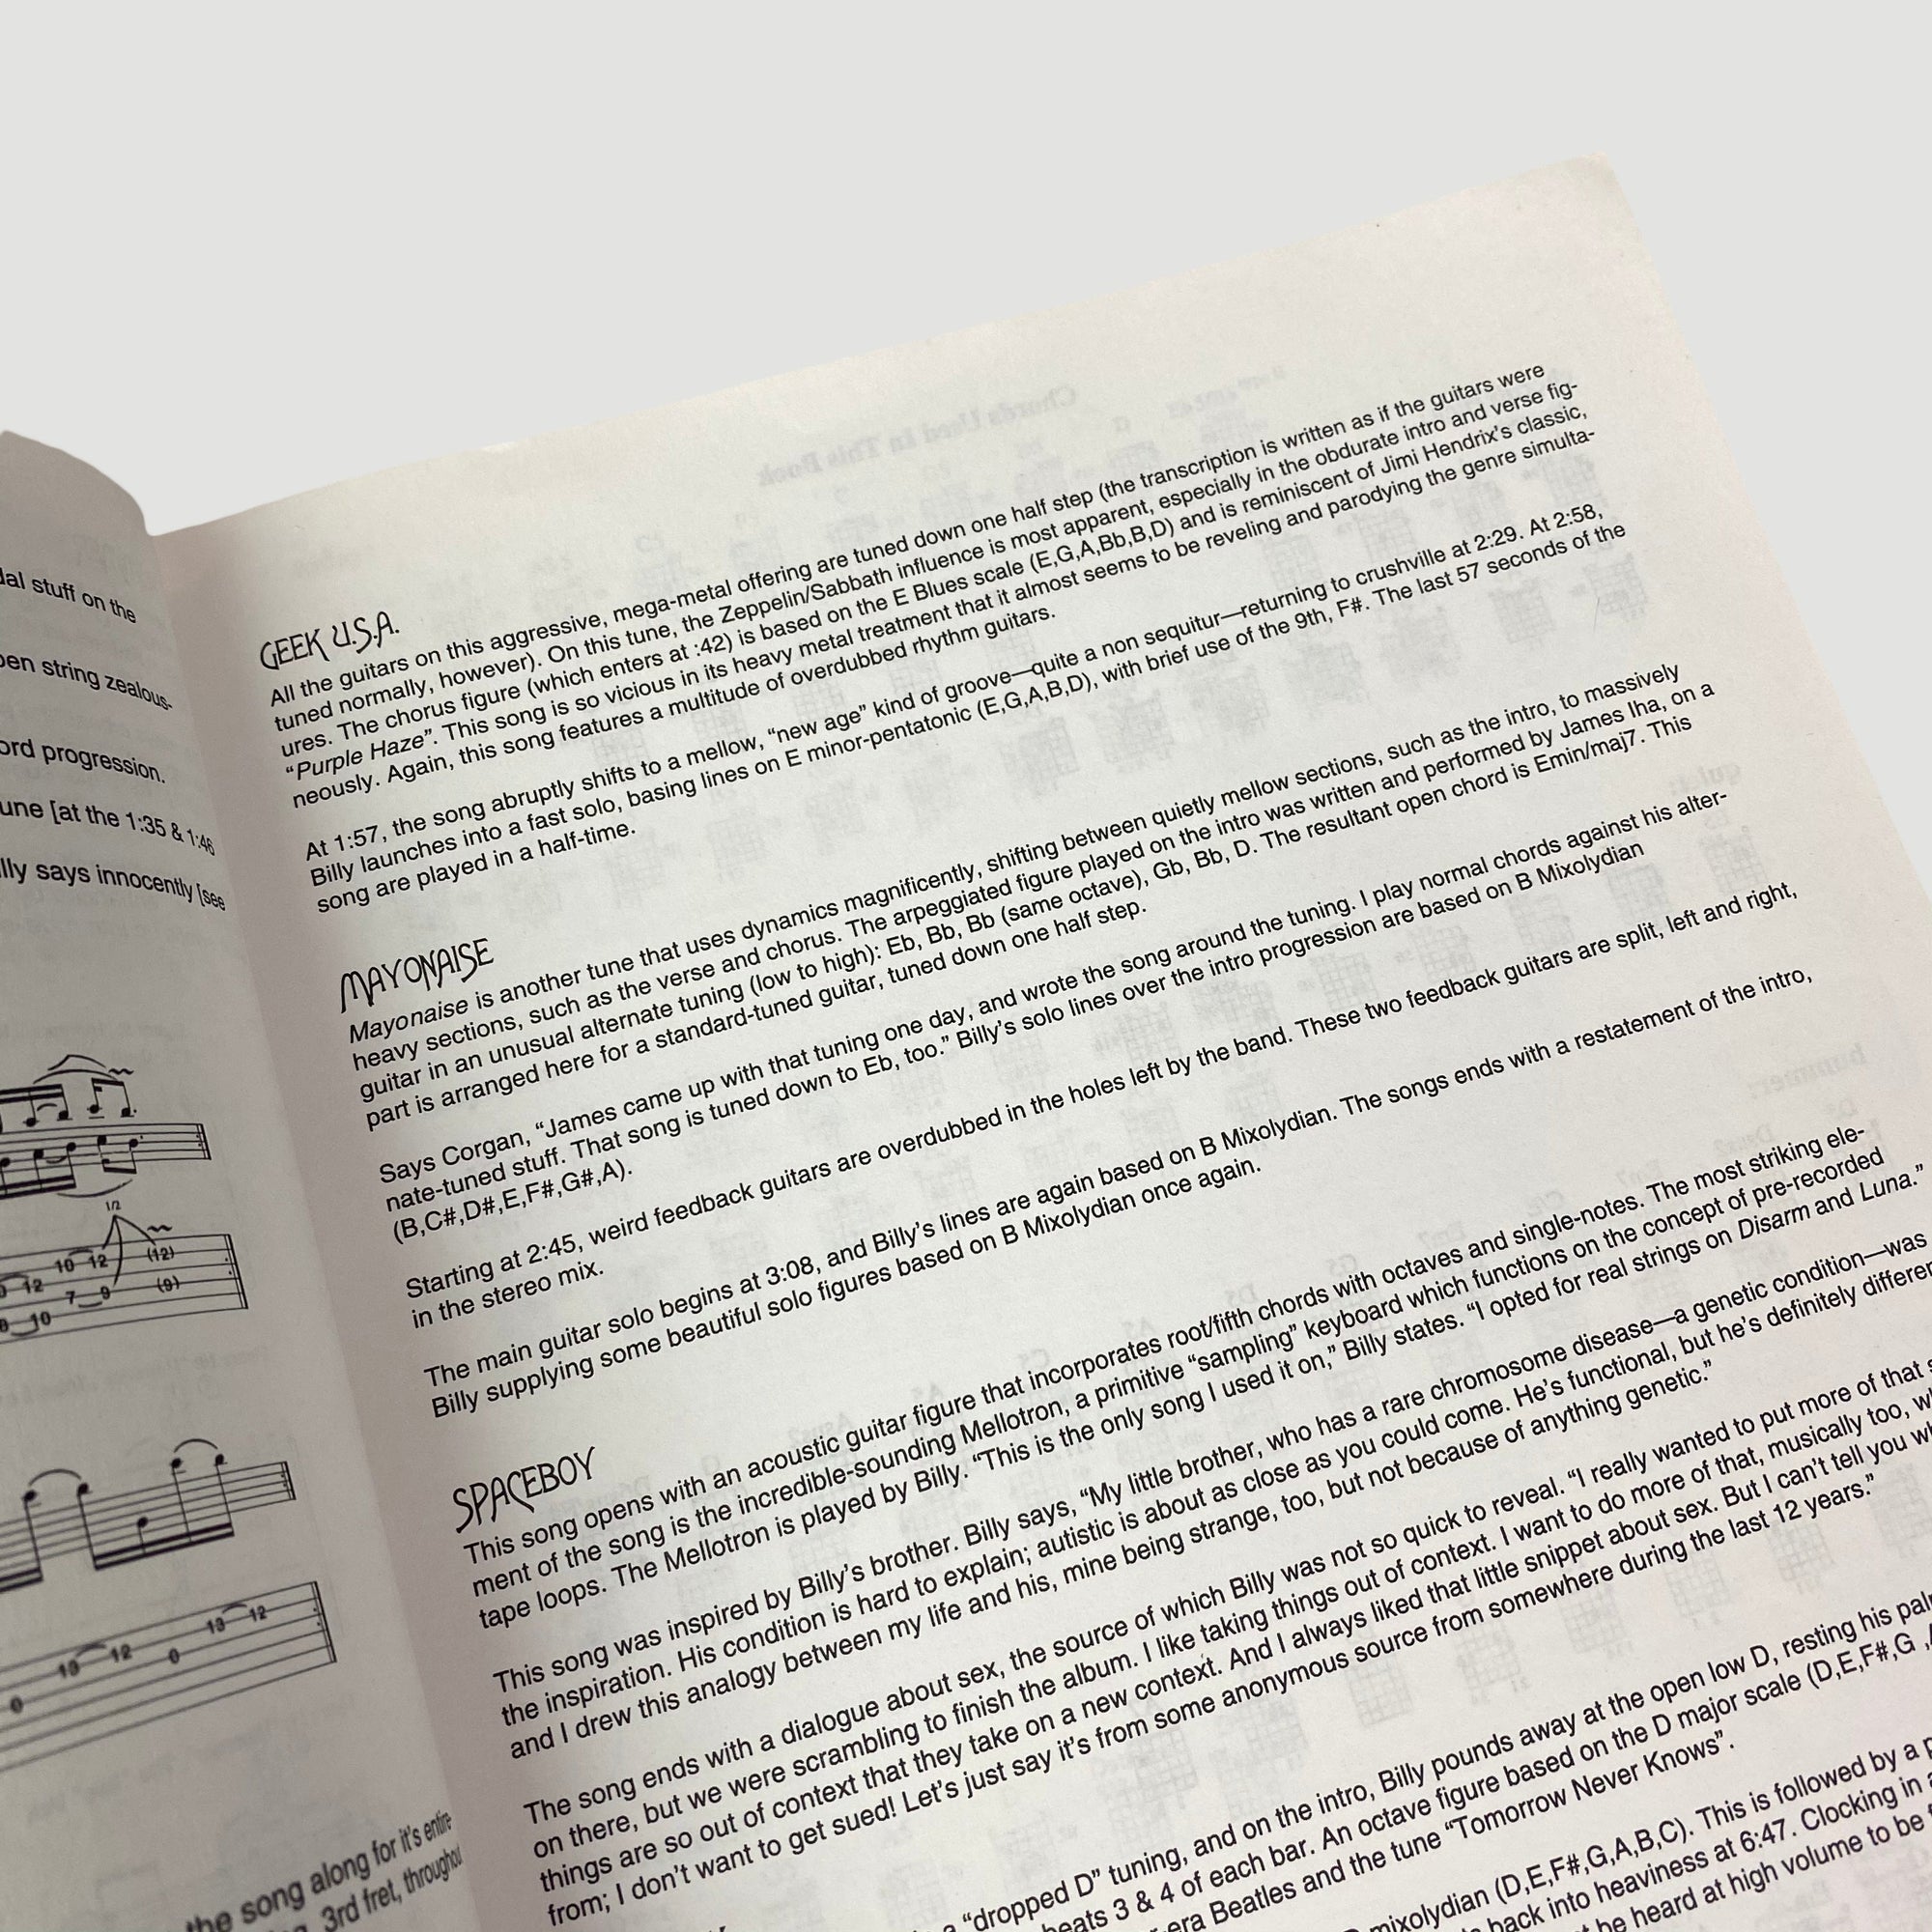 dal stuff on the
pen string zealous-
ord progression.
une [at the 1:35 & 1:46
illy says innocently [see
1/2
10 12 (12)
12 7 9 (9)
8 10
13 12 13 12
0 0
the song along for it's entire-
3rd fret, throughout
GEEK U.S.A.
All the guitars on this aggressive, mega-metal offering are tuned down one half step (the transcription is written as if the guitars were
tuned normally, however). On this tune, the Zeppelin/Sabbath influence is most apparent, especially in the obdurate intro and verse fig-
ures. The chorus figure (which enters at :42) is based on the E Blues scale (E,G,A,Bb,B,D) and is reminiscent of Jimi Hendrix's classic,
“Purple Haze”. This song is so vicious in its heavy metal treatment that it almost seems to be reveling and parodying the genre simulta-
neously. Again, this song features a multitude of overdubbed rhythm guitars.
At 1:57, the song abruptly shifts to a mellow, “new age” kind of groove—quite a non sequitur—returning to crushville at 2:29. At 2:58,
Billy launches into a fast solo, basing lines on E minor-pentatonic (E,G,A,B,D), with brief use of the 9th, F#. The last 57 seconds of the
song are played in a half-time.
MAYONAISE
Mayonaise is another tune that uses dynamics magnificently, shifting between quietly mellow sections, such as the intro, to massively
heavy sections, such as the verse and chorus. The arpeggiated figure played on the intro was written and performed by James Iha, on a
guitar in an unusual alternate tuning (low to high): Eb, Bb, Bb (same octave), Gb, Bb, D. The resultant open chord is Emin/maj7. This
part is arranged here for a standard-tuned guitar, tuned down one half step.
Says Corgan, “James came up with that tuning one day, and wrote the song around the tuning. I play normal chords against his alter-
nate-tuned stuff. That song is tuned down to Eb, too.” Billy's solo lines over the intro progression are based on B Mixolydian
(B,C#,D#,E,F#,G#,A).
Starting at 2:45, weird feedback guitars are overdubbed in the holes left by the band. These two feedback guitars are split, left and right,
in the stereo mix.
The main guitar solo begins at 3:08, and Billy's lines are again based on B Mixolydian. The songs ends with a restatement of the intro,
Billy supplying some beautiful solo figures based on B Mixolydian once again.
SPACEBOY
This song opens with an acoustic guitar figure that incorporates root/fifth chords with octaves and single-notes. The most striking ele-
ment of the song is the incredible-sounding Mellotron, a primitive “sampling” keyboard which functions on the concept of pre-recorded
tape loops. The Mellotron is played by Billy. “This is the only song I used it on,” Billy states. “I opted for real strings on Disarm and Luna.”
This song was inspired by Billy's brother. Billy says, “My little brother, who has a rare chromosome disease—a genetic condition—was
the inspiration. His condition is hard to explain; autistic is about as close as you could come. He's functional, but he's definitely differen
and I drew this analogy between my life and his, mine being strange, too, but not because of anything genetic.”
The song ends with a dialogue about sex, the source of which Billy was not so quick to reveal. “I really wanted to put more of that s
on there, but we were scrambling to finish the album. I like taking things out of context. I want to do more of that, musically too, w
things are so out of context that they take on a new context. And I always liked that little snippet about sex. But I can't tell you wh
from; I don't want to get sued! Let's just say it's from some anonymous source from somewhere during the last 12 years.”
a “dropped D” tuning, and on the intro, Billy pounds away at the open low D, resting his palm
beats 3 & 4 of each bar. An octave figure based on the D major scale (D,E,F#,G ,A
era Beatles and the tune “Tomorrow Never Knows”.
D mixolydian (D,E,F#,G,A,B,C). This is followed by a p
back into heaviness at 6:47. Clocking in a
be heard at high volume to be